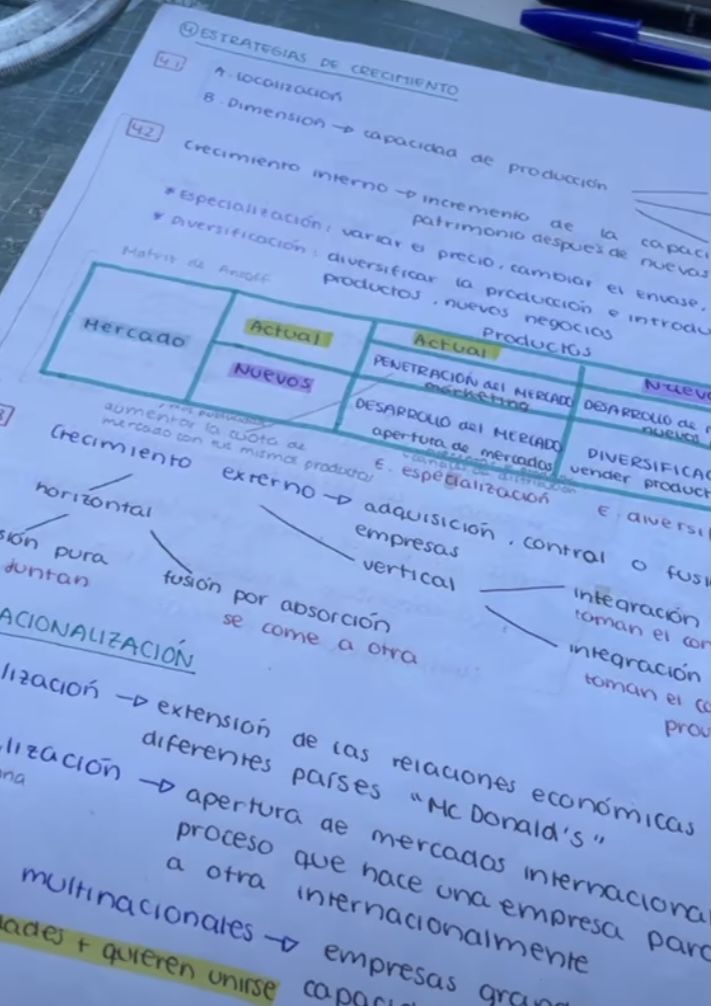 ④ ESTRATEGIAS DE CRECIMIENTO
4.1 A. Localización
B. Dimensión → capacidad de producción
4.2 Crecimiento interno → incremento de la capaci
patrimonio después de nuevas
* Especialización: variar el precio, cambiar el envase.
* Diversificación: diversificar la producción e introdu
productos, nuevos negocios
Matriz de Ansoff
Productos
Mercado
Actual
Actual
Nuev
Nuevos
PENETRACIÓN del MERCADO
marketing
DESARROLLO de
nuevos
DESARROLLO del MERCADO
apertura de mercados
DIVERSIFICAC
vender product
aumentar la cuota de
mercado con sus mismos productos
canales de distribución
E. especialización
E. diversi
Crecimiento externo → adquisición, control o fusi
empresas
horizontal
vertical
sión pura
juntan
fusión por absorción
se come a otra
integración
toman el con
integración
toman el co
prov
ACIONALIZACIÓN
lización → extensión de las relaciones económicas
diferentes países "Mc Donald's"
lización → apertura de mercados internaciona
proceso que hace una empresa para
a otra internacionalmente
multinacionales → empresas gran
dades + quieren unirse